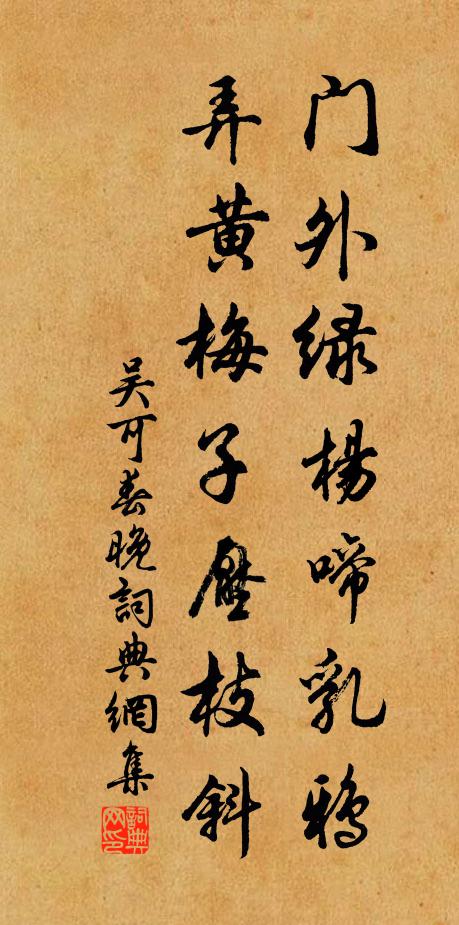 门外绿杨啼乳鸦
弄黄梅子压枝斜
吴可春晚詞典網集
詞典网印